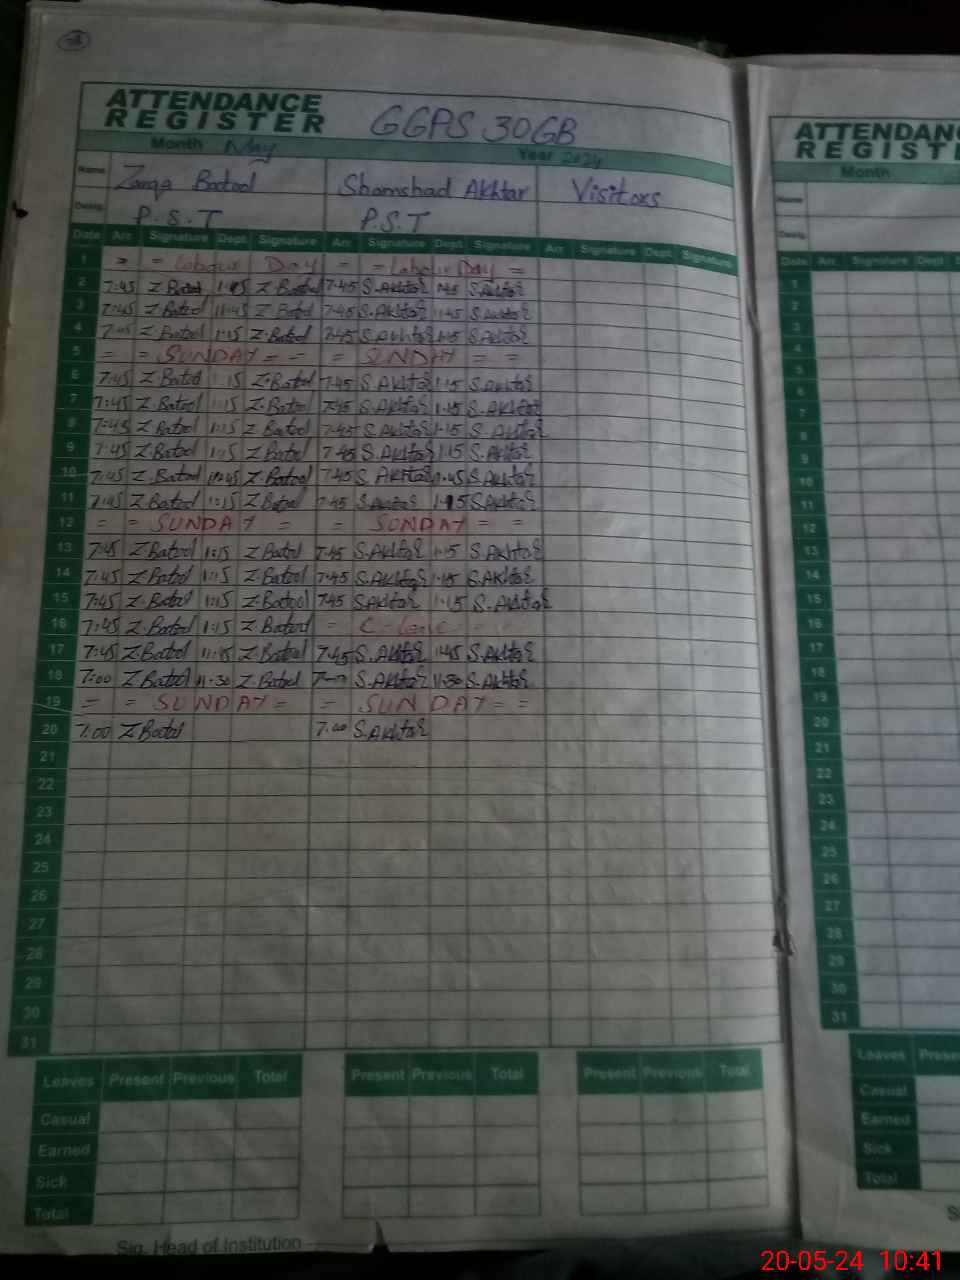 ATTENDANCE
REGISTER GGPS 30GB
Month May Year 2024
Name Batool Shamshad Akhtar Visitors
Desig. P.S.T P.S.T
Date Arr. Signature Dept. Signature Arr. Signature Dept. Signature Arr. Signature Dept. Signature
1 = = Labour Day = = Labour Day =
2 7:45 Z Batool Z Batool 7:45 S.Akhtar S.Akhtar
3 7:45 Z Batool 11:45 Z Batool 7:45 S.Akhtar 11:45 S.Akhtar
4 7:45 Z.Batool 1:15 Z.Batool 7:45 S.Akhtar 1:15 S.Akhtar
5 = = SUNDAY = = = SUNDAY = =
6 7:45 Z Batool 1:15 Z.Batool 7:45 S.Akhtar 1:15 S.Akhtar
7 7:45 Z.Batool 1:15 Z.Batool 7:45 S.Akhtar 1:15 S.Akhtar
8 7:45 Z Batool 1:15 Z Batool 7:45 S.Akhtar 1:15 S.Akhtar
9 7:45 Z.Batool 1:15 Z Batool 7:45 S.Akhtar 1:15 S.Akhtar
10 7:45 Z.Batool Z.Batool 7:45 S.Akhtar S.Akhtar
11 7:45 Z.Batool 1:15 Z Batool 7:45 S.Akhtar 1:15 S.Akhtar
12 = = SUNDAY = = SUNDAY = =
13 7:45 Z Batool 1:15 Z Batool 7:45 S.Akhtar 1:15 S.Akhtar
14 7:45 Z Batool 1:15 Z Batool 7:45 S.Akhtar 1:15 S.Akhtar
15 7:45 Z.Batool 1:15 Z.Batool 7:45 S.Akhtar 1:15 S.Akhtar
16 7:45 Z.Batool 1:15 Z Batool = C-leave
17 7:45 Z.Batool Z Batool 7:45 S.Akhtar S.Akhtar
18 7:00 Z Batool 11:30 Z.Batool S.Akhtar 11:30 S.Akhtar
19 = = SUNDAY = = SUNDAY = =
20 7:00 Z Batool 7:00 S.Akhtar
21
22
23
24
25
26
27
28
29
30
31
Leaves Present Previous Total Present Previous Total Present Previous Total
Casual
Earned
Sick
Total
Sig. Head of Institution
ATTENDAN
REGIST
Month
Name
Desig.
Date Arr. Signature Dept
1
2
3
4
5
6
7
8
9
10
11
12
13
14
15
16
17
18
19
20
21
22
23
24
25
26
27
28
29
30
31
Leaves Prese
Casual
Earned
Sick
Total
20-05-24 10:41